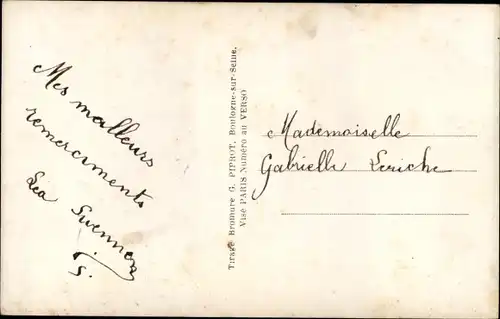 Mes malleurs
remerciments
Lea
Tirage Bromure G. PIPROT, Boulogne-sur-Seine.
Visé PARIS Numéro au VERSO
Mademoiselle
Gabrielle Leriche